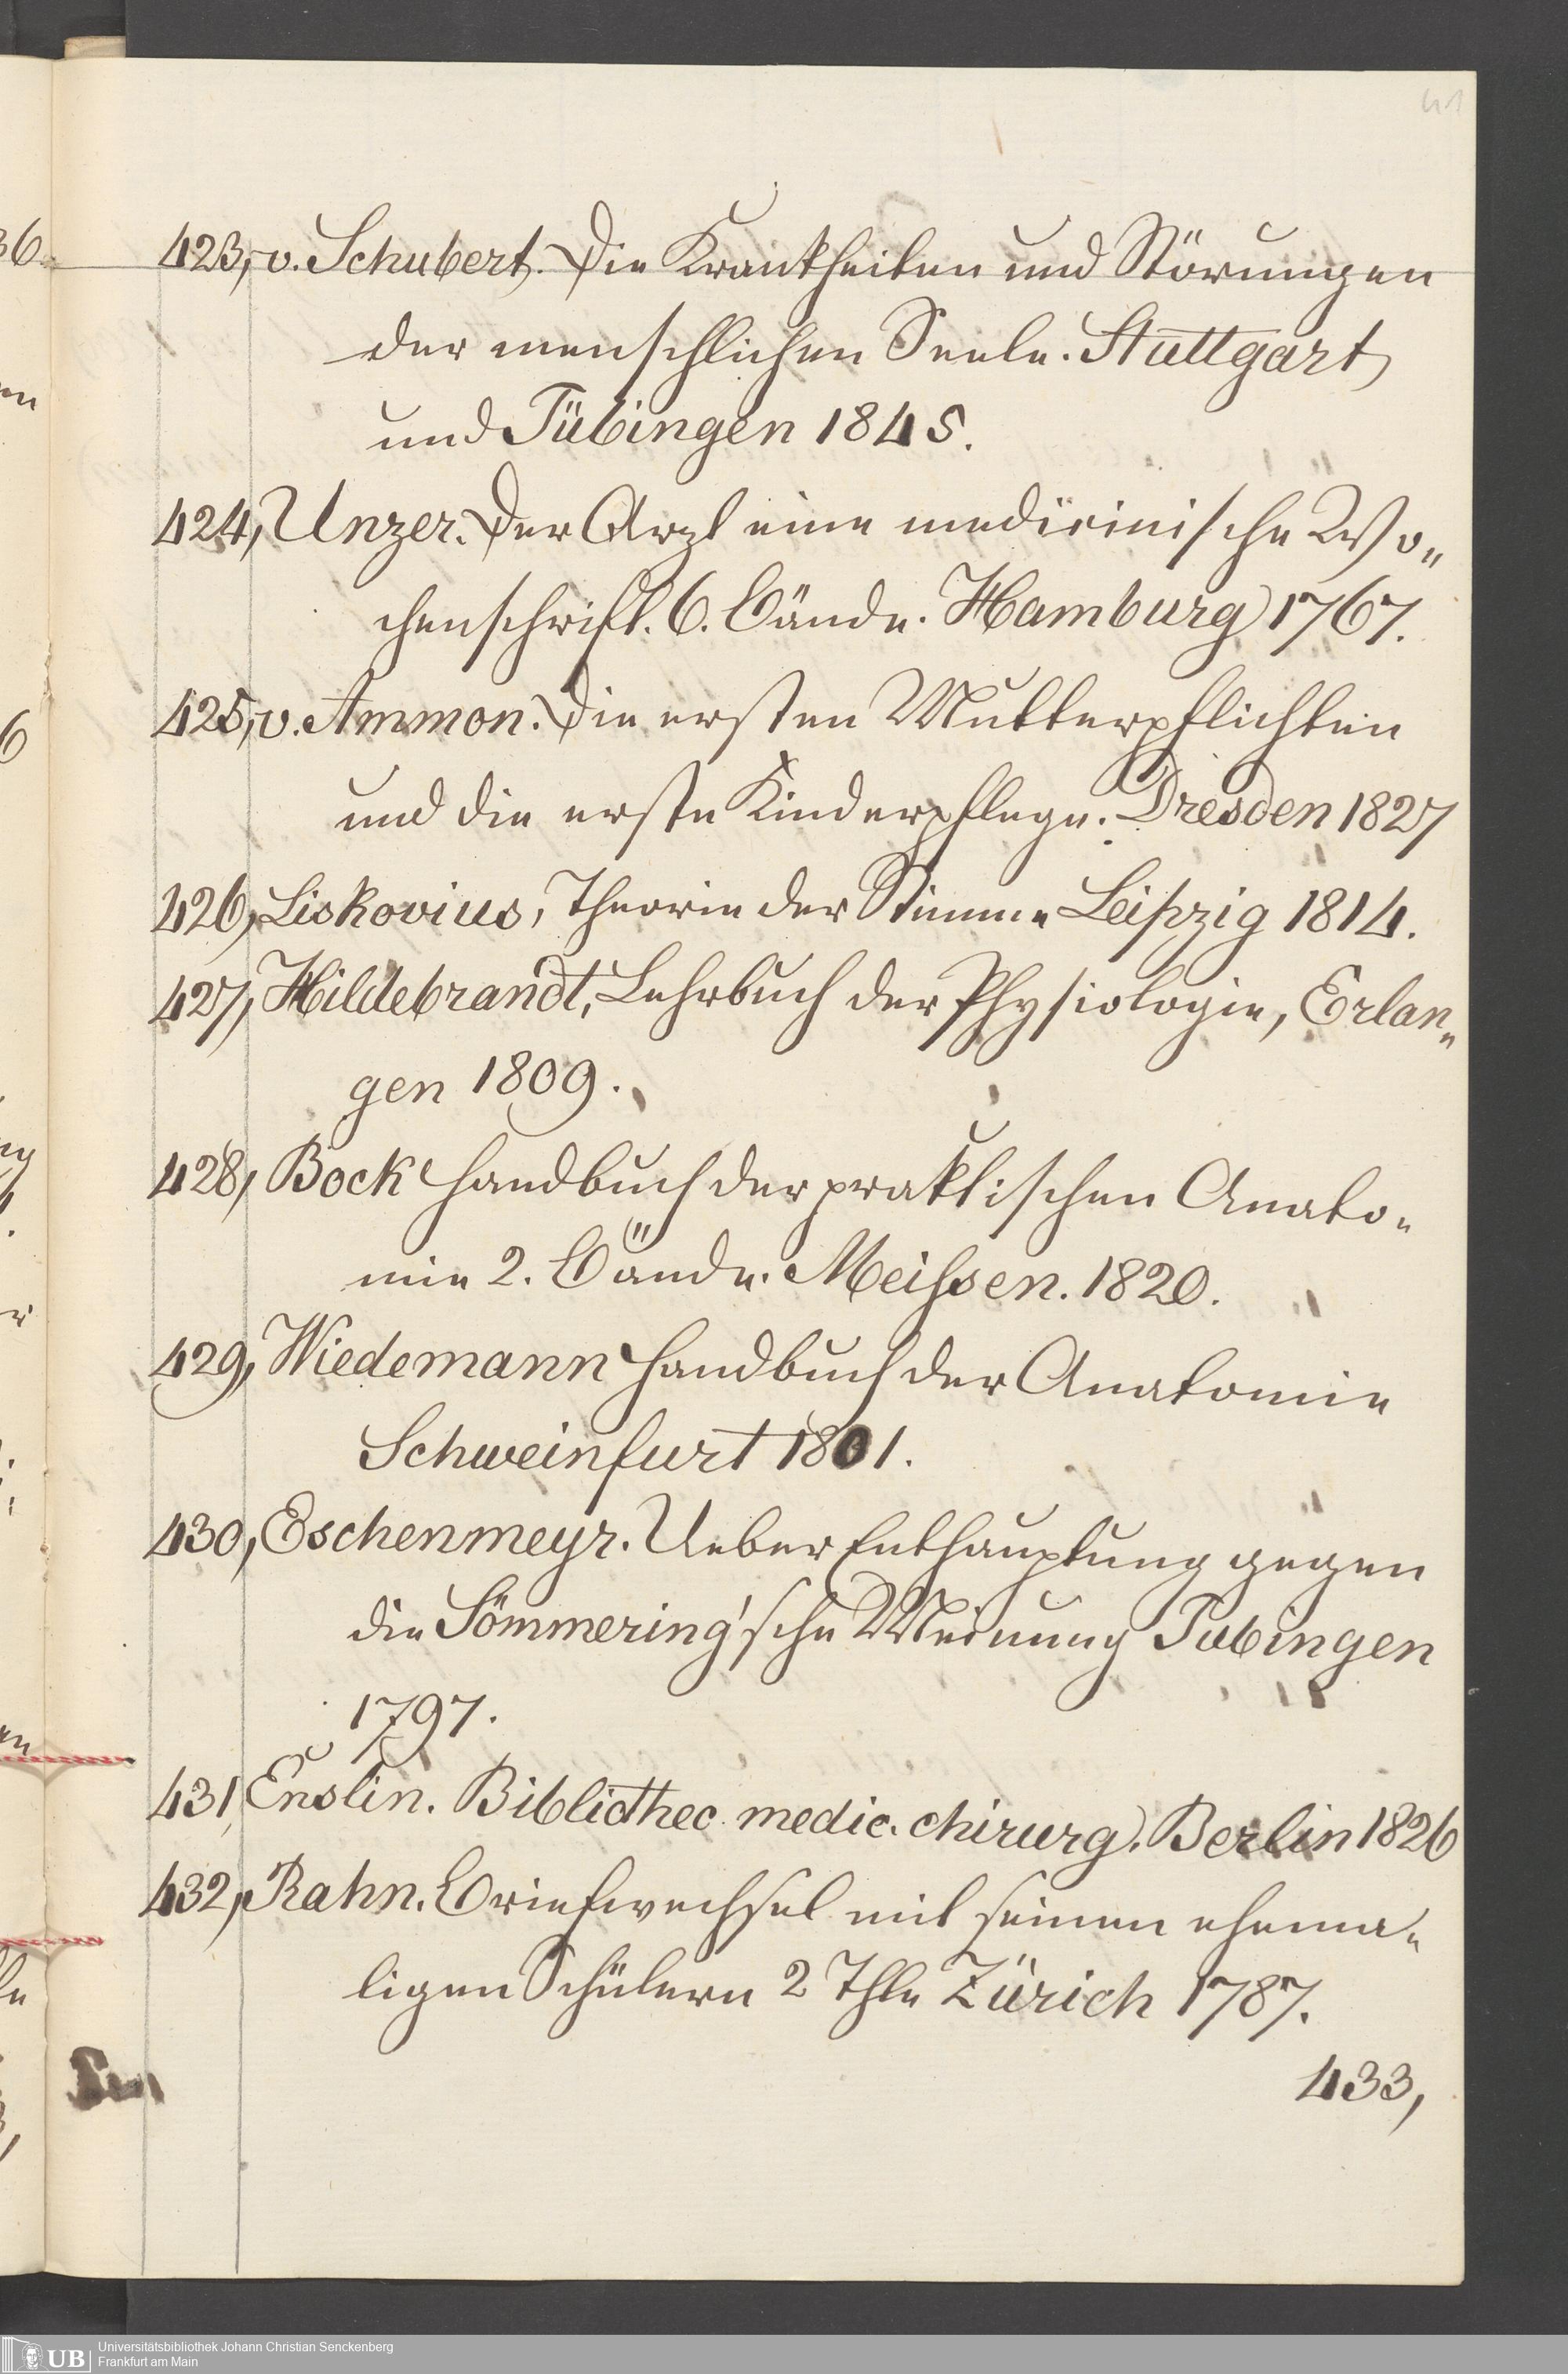 41
423, v. Schubert. Die Krankheiten und Störungen
der menschlichen Seele. Stuttgart
und Tübingen 1845.
424, Unzer. Der Arzt eine medicinische Wo„
chenschrift. 6. Bände. Hamburg 1767.
425, v. Ammon. Die ersten Mutterpflichten
und die erste Kinderpflege. Dresden 1827
426, Liskovius, Theorie der Stimme Leipzig 1814.
427, Hildebrandt, Lehrbuch der Physiologie, Erlan„
gen 1809.
428, Bock Handbuch der praktischen Anato„
mie 2. Bände. Meißsen. 1820.
429, Wiedemann Handbuch der Anatomie
Schweinfurt 1801.
430, Eschenmeyr. Ueber Enthauptung gegen
die Sömmering'sche Meinung Tubingen
1797.
431, Enslin. Bibliothec. medic. chirurg. Berlin 1826
432, Rahn. Briefwechsel mit seinen ehema„
ligen Schülern 2 Thle Zürich 1787.
433,
UB Universitätsbibliothek Johann Christian Senckenberg
Frankfurt am Main